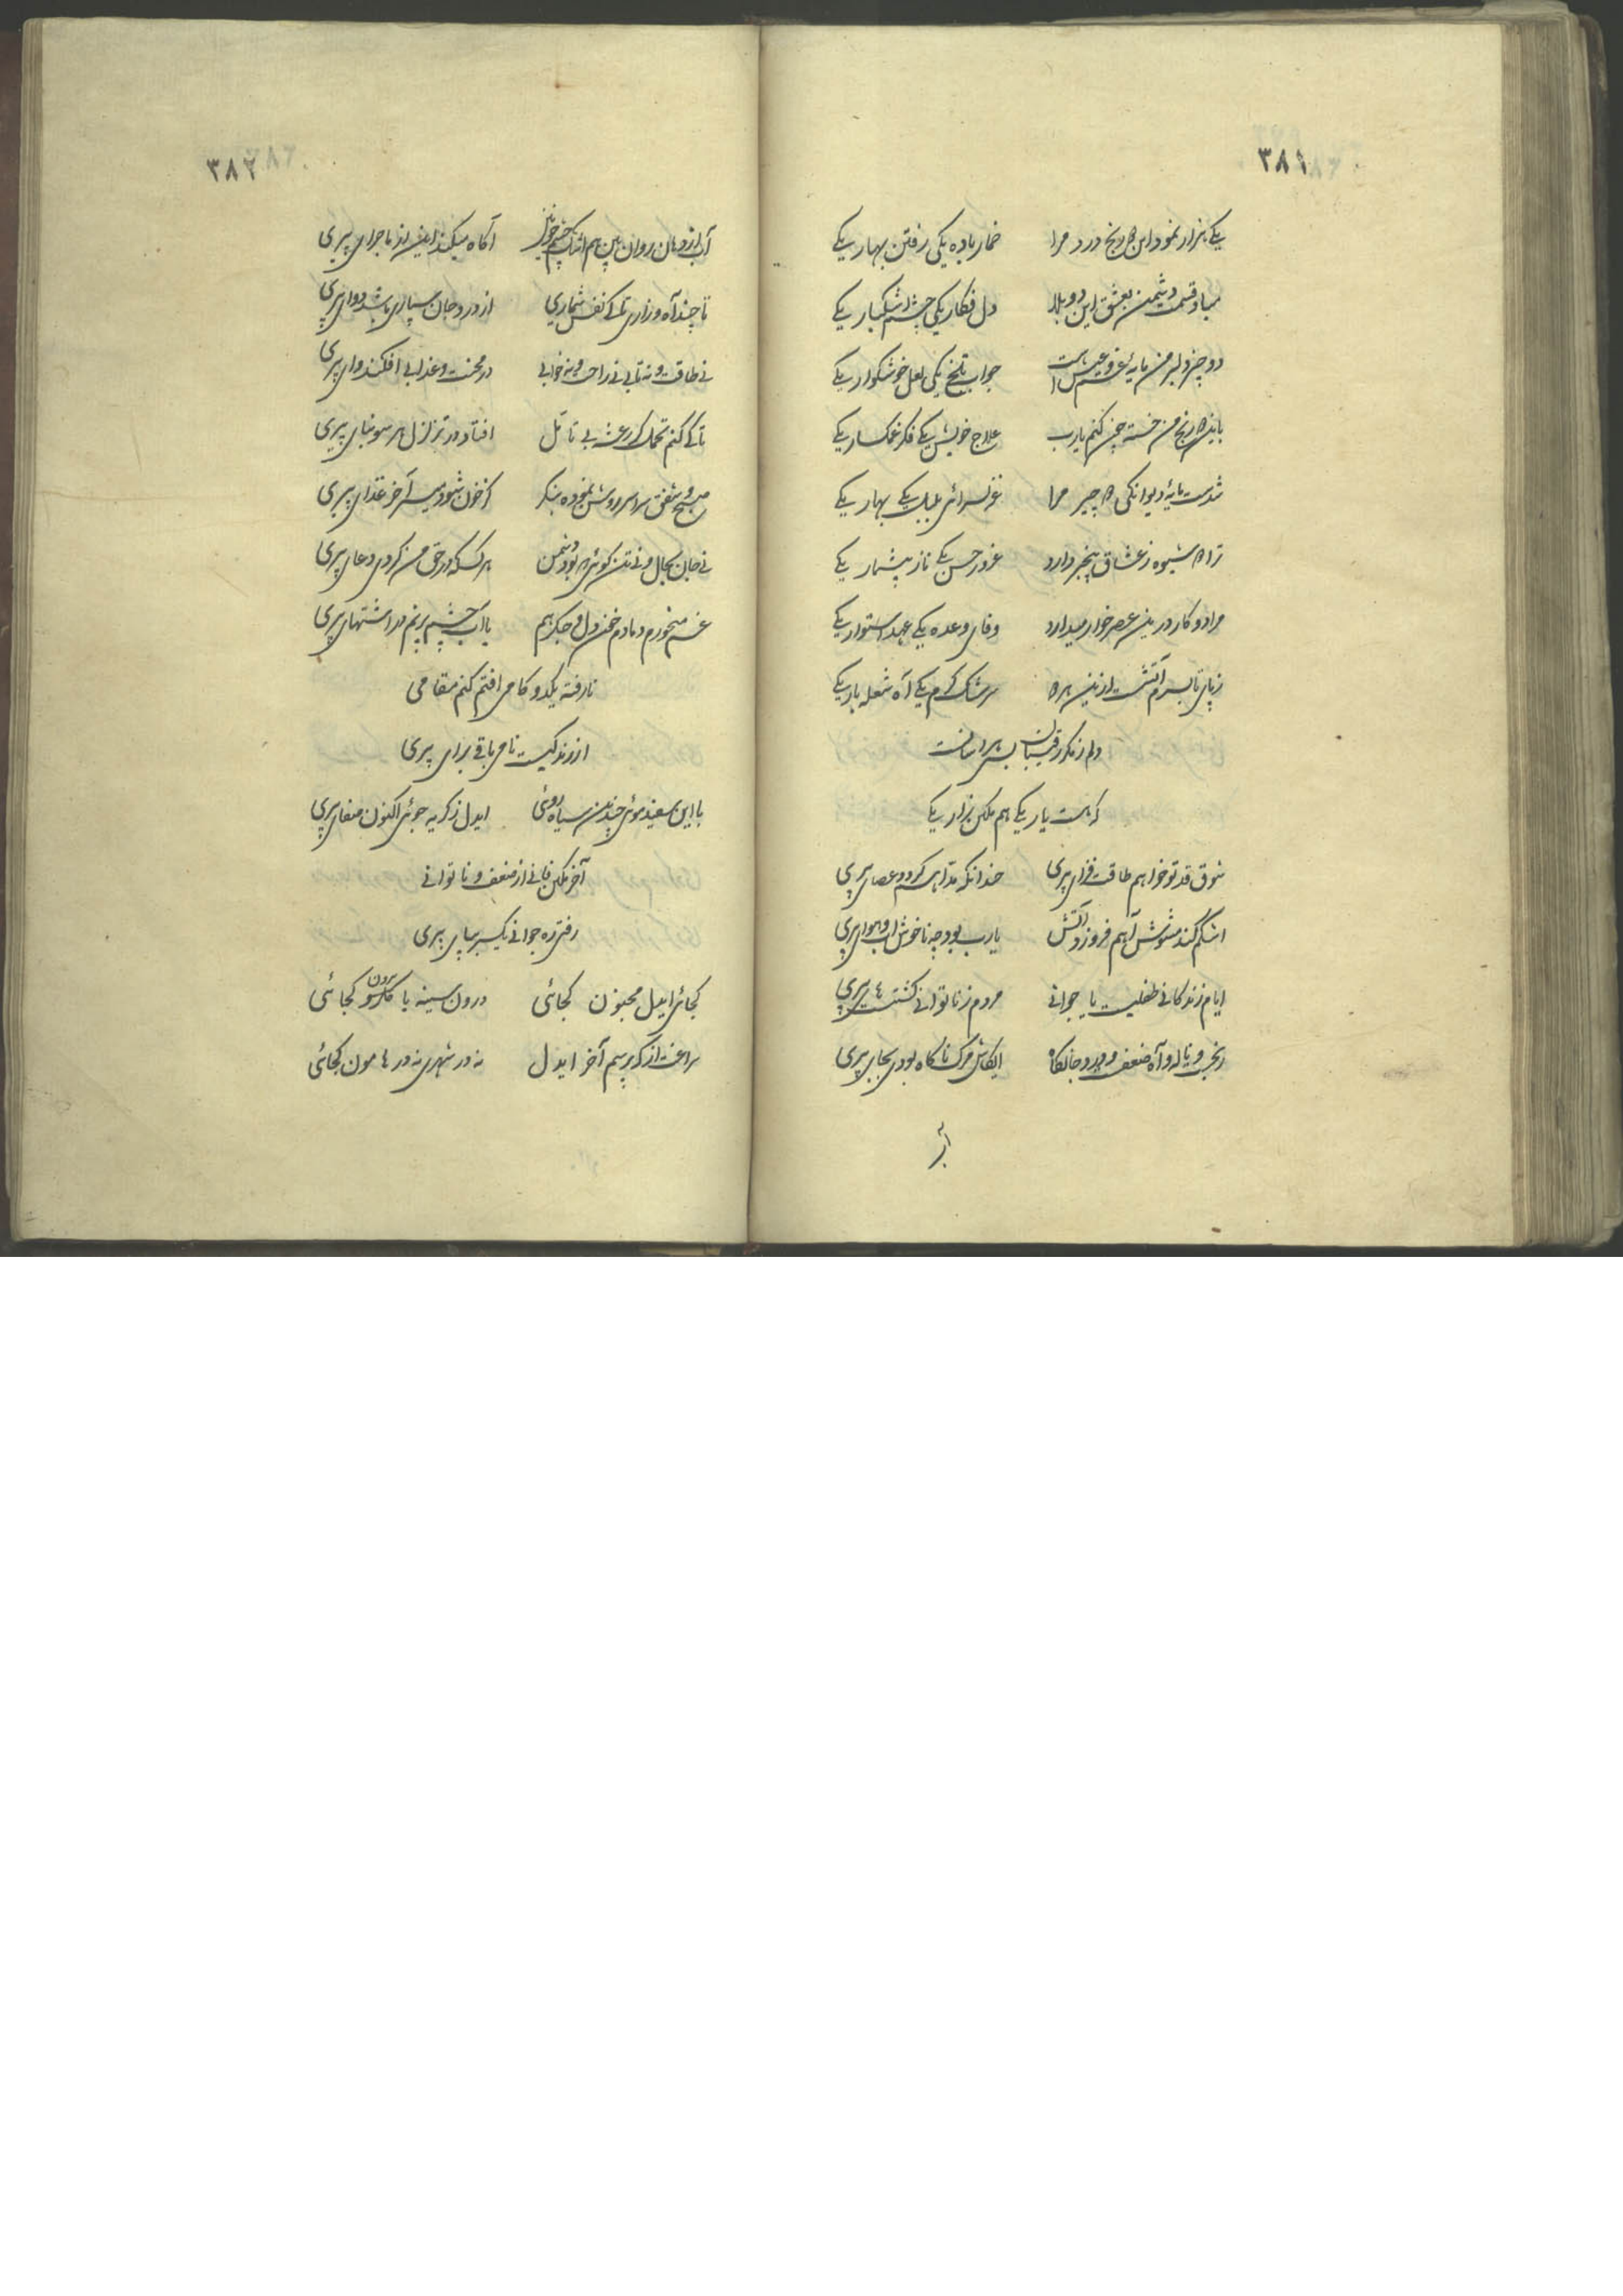 ۳۸۱
یکی هزار نمود این دو رنج درد مرا خمار باده یکی رفتن بهار یکی
مباد قسمت دشمن بعشق این دو بلا دل فکار یکی چشم اشکبار یکی
دو چیز دلبر من مایهٔ غم و عیش است جواب تلخ یکی لعل خوشکوار یکی
باین دو رنج من خسته چون کنم یارب علاج خویش یکی فکر غمکسار یکی
شدست مایهٔ دیوانکی دو چیز مرا غزلسرائی بلبل یکی بهار یکی
ترا دو شیوه ز عشاق بیخبر دارد غرور حسن یکی ناز بیشمار یکی
مرا دو کار درین عصر خوار میدارد وفای وعده یکی عهد استوار یکی
ز پای تا بسرم آتشست ازین هر دو سرشک کرم یکی آه شعله بار یکی
دلم ز مکر رقیبان بسی هراسانست
که هست یار یکی هم مکن هزار یکی
شوق قد تو خواهم طاقت فزای پیری کردد عصای پیری
اشکم کند مشوش آهم فروزد آتش یارب بود چه ناخوش آب و هوای پیری
ایام زندکانی طفلیست یا جوانی مردم ز ناتوانی کشتست تا پیری
رنج و ناله و آه ضعف و درد جانکاه ایکاش مرک ناکاه بودی بجای پیری
۳۸۲
آب از دهان روان بین هم اشک چشم خونین آکاه میکند این از ماجرای پیری
تا چند آه و زاری تا کی نفس شماری از درد جان سپاری باشد دوای پیری
نی طاقت و نه تابی نی راحت و نه خوابی در محنت و عذابی افکند وای پیری
تا کی کنم تحمل کز رعشه بی تامل افتاد در تزلزل هر سو بنای پیری
صبح و شفق سراسر روشن نموده بنکر کز خون شود میسر آخر غذای پیری
نی جان بجا و نی تن کوئی که بود دشمن هر کس که در حق من کردی دعای پیری
غم میخورم دمادم خون دل و جکر هم با آب چشم پرنم در اشتهای پیری
نارفته یکدو کامی افتم کنم مقامی
از زندکیست نامی باقی برای پیری
با این سفید موئی چندین سیاه روئی ایدل ز کریه جوئی اکنون صفای پیری
آخر مکن فانی از ضعف و ناتوانی
رفتی ره جوانی یکسر بپای پیری
کجائی ایدل محزون کجائی درون سینه یا بیرون کجائی
سراغت از که پرسم آخر ایدل نه در شهری نه در هامون کجائی